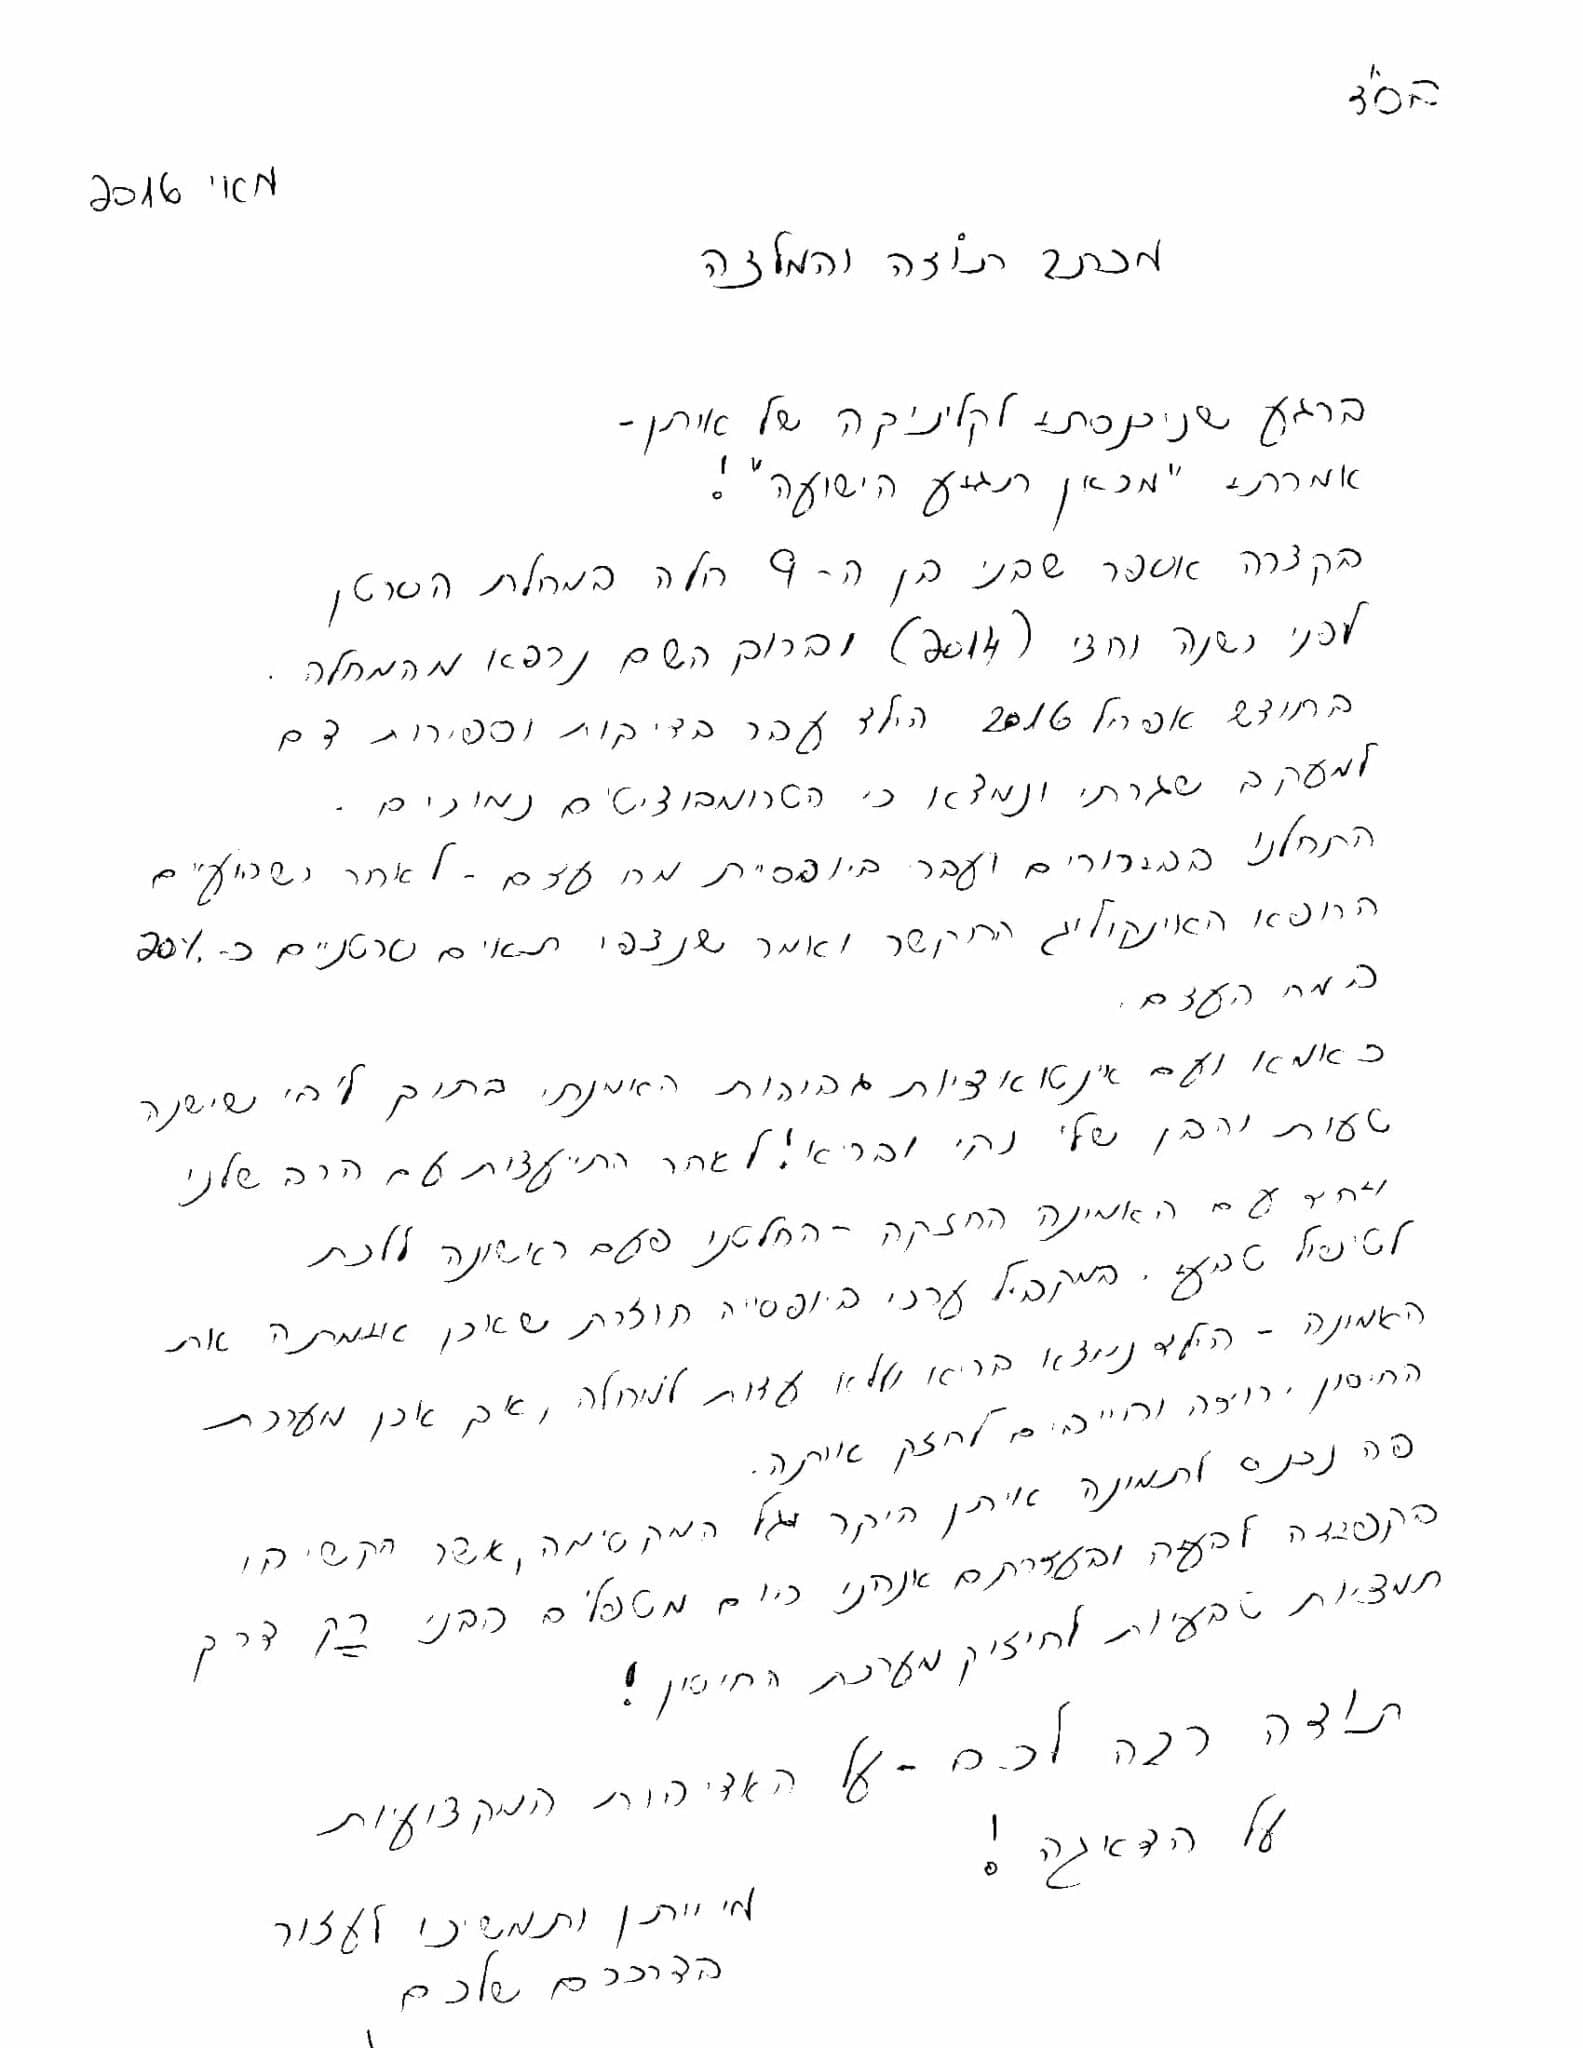 בס"ד
מאי 2016
מכתב תודה והמלצה
ברגע שניכנסתי לקליניקה של איתן -
אמרתי "מכאן תגיע הישועה"!
בקצרה אספר שבני בן ה- 9 חלה במחלת הסרטן
לפני כשנה וחצי (2014) וברוך השם נרפא מהמחלה.
בחודש אפריל 2016 הילד עבר בדיקות וספירות דם
למעקב שגרתי ונמצא כי הטרומבוציטים נמוכים.
התחלנו בבירורים ועבר ביופסיית מח עצם - לאחר כשבועיים
הרופא האינקוליג התקשר ואמר שנצפו תאים סרטניים כ- 20%
במח העצם.
כאמא ועם אינטואציות גבוהות האמנתי בתוך ליבי שישנה
טעות והבן שלי נקי ובריא! לאחר התייעצות עם הרב שלנו
ויחד עם האמינה החזקה - החלטנו פעם ראשונה ללכת
לטיפול טבעי. במקביל ערכו ביופסייה חוזרת שאכן אימתה את
האמונה - הילד נימצא בריא וללא עדות למחלה, אך אכן מערכת
החיסון ירודה וחייבים לחזק אותה.
פה נכנס לתמונה איתן היקר וגל המקסימה, אשר הקשיבו
בקפידה לבעיה ובעזרתם אנחנו כיום מטפלים בבני רק דרך
תמציות טבעיות לחיזוק מערכת החיסון!
תודה רבה לכם - על האדיבות המקצועיות
על הדאגה!
מי ייתן ותמשיכו לעזור
בדרככם שלכם